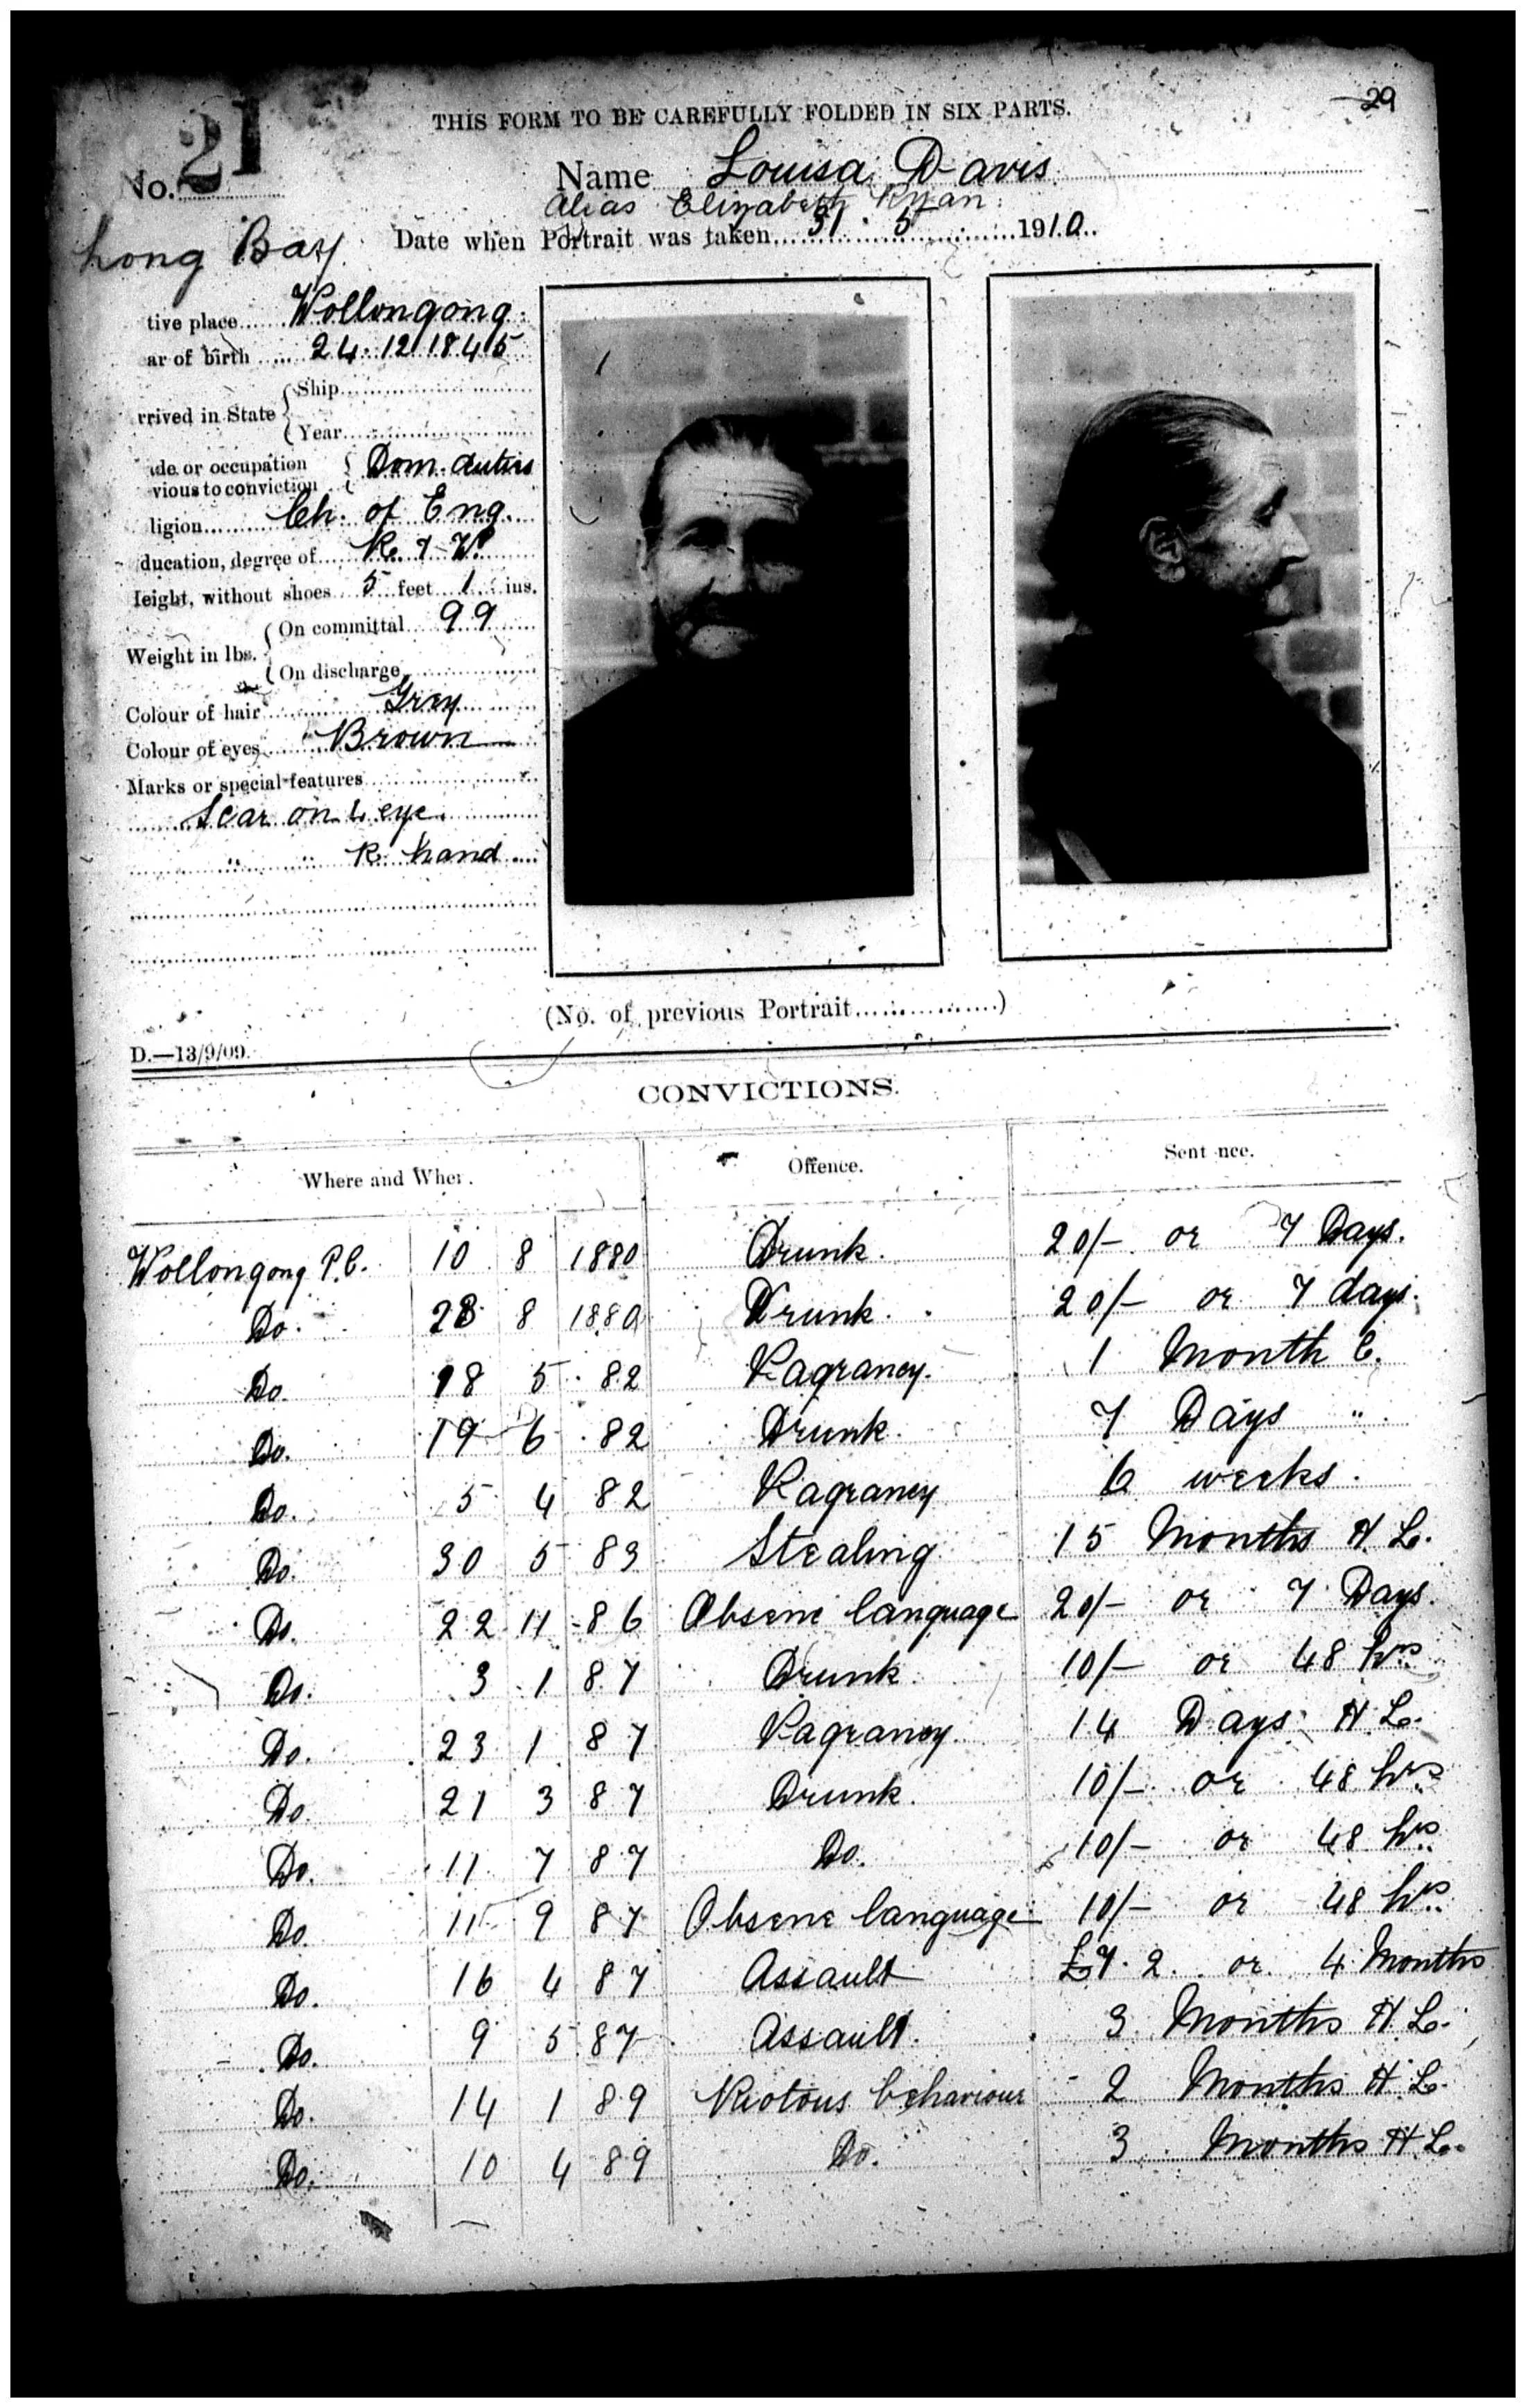 29
THIS FORM TO BE CAREFULLY FOLDED IN SIX PARTS.
No. 21
Name Louisa Davis
Alias Elizabeth Ryan
Long Bay
Date when Portrait was taken 31 . 5 1910
tive place Wollongong
ar of birth 24.12.1845
rrived in State { Ship
Year
ade or occupation
vious to conviction { Dom. duties
ligion Ch. of Eng.
ducation, degree of R. & W.
Height, without shoes 5 feet 1 ins.
Weight in lbs. { On committal 99
On discharge
Colour of hair Grey
Colour of eyes Brown
Marks or special features
Scar on L eye
" " R. hand
(No. of previous Portrait )
D.—13/9/09.
CONVICTIONS.
Where and When. Offence. Sentence.
Wollongong P.C. 10 8 1880 Drunk. 20/- or 7 Days.
Do. 28 8 1880 Drunk. 20/- or 7 days.
Do. 18 5 82 Vagrancy. 1 Month C.
Do. 19 6 82 Drunk. 7 Days "
Do. 5 4 82 Vagrancy 6 weeks.
Do. 30 5 83 Stealing 15 Months H.L.
Do. 22 11 86 Obsene language 20/- or 7 Days.
Do. 3 1 87 Drunk. 10/- or 48 hrs
Do. 23 1 87 Vagrancy. 14 Days H.L.
Do. 21 3 87 Drunk. 10/- or 48 hrs
Do. 11 7 87 Do. 10/- or 48 hrs
Do. 11 9 87 Obsene language 10/- or 48 hrs
Do. 16 4 87 Assault £7.2. or 4 Months
Do. 9 5 87 Assault. 3 Months H.L.
Do. 14 1 89 Riotous behaviour 2 Months H.L.
Do. 10 4 89 Do. 3 Months H.L.